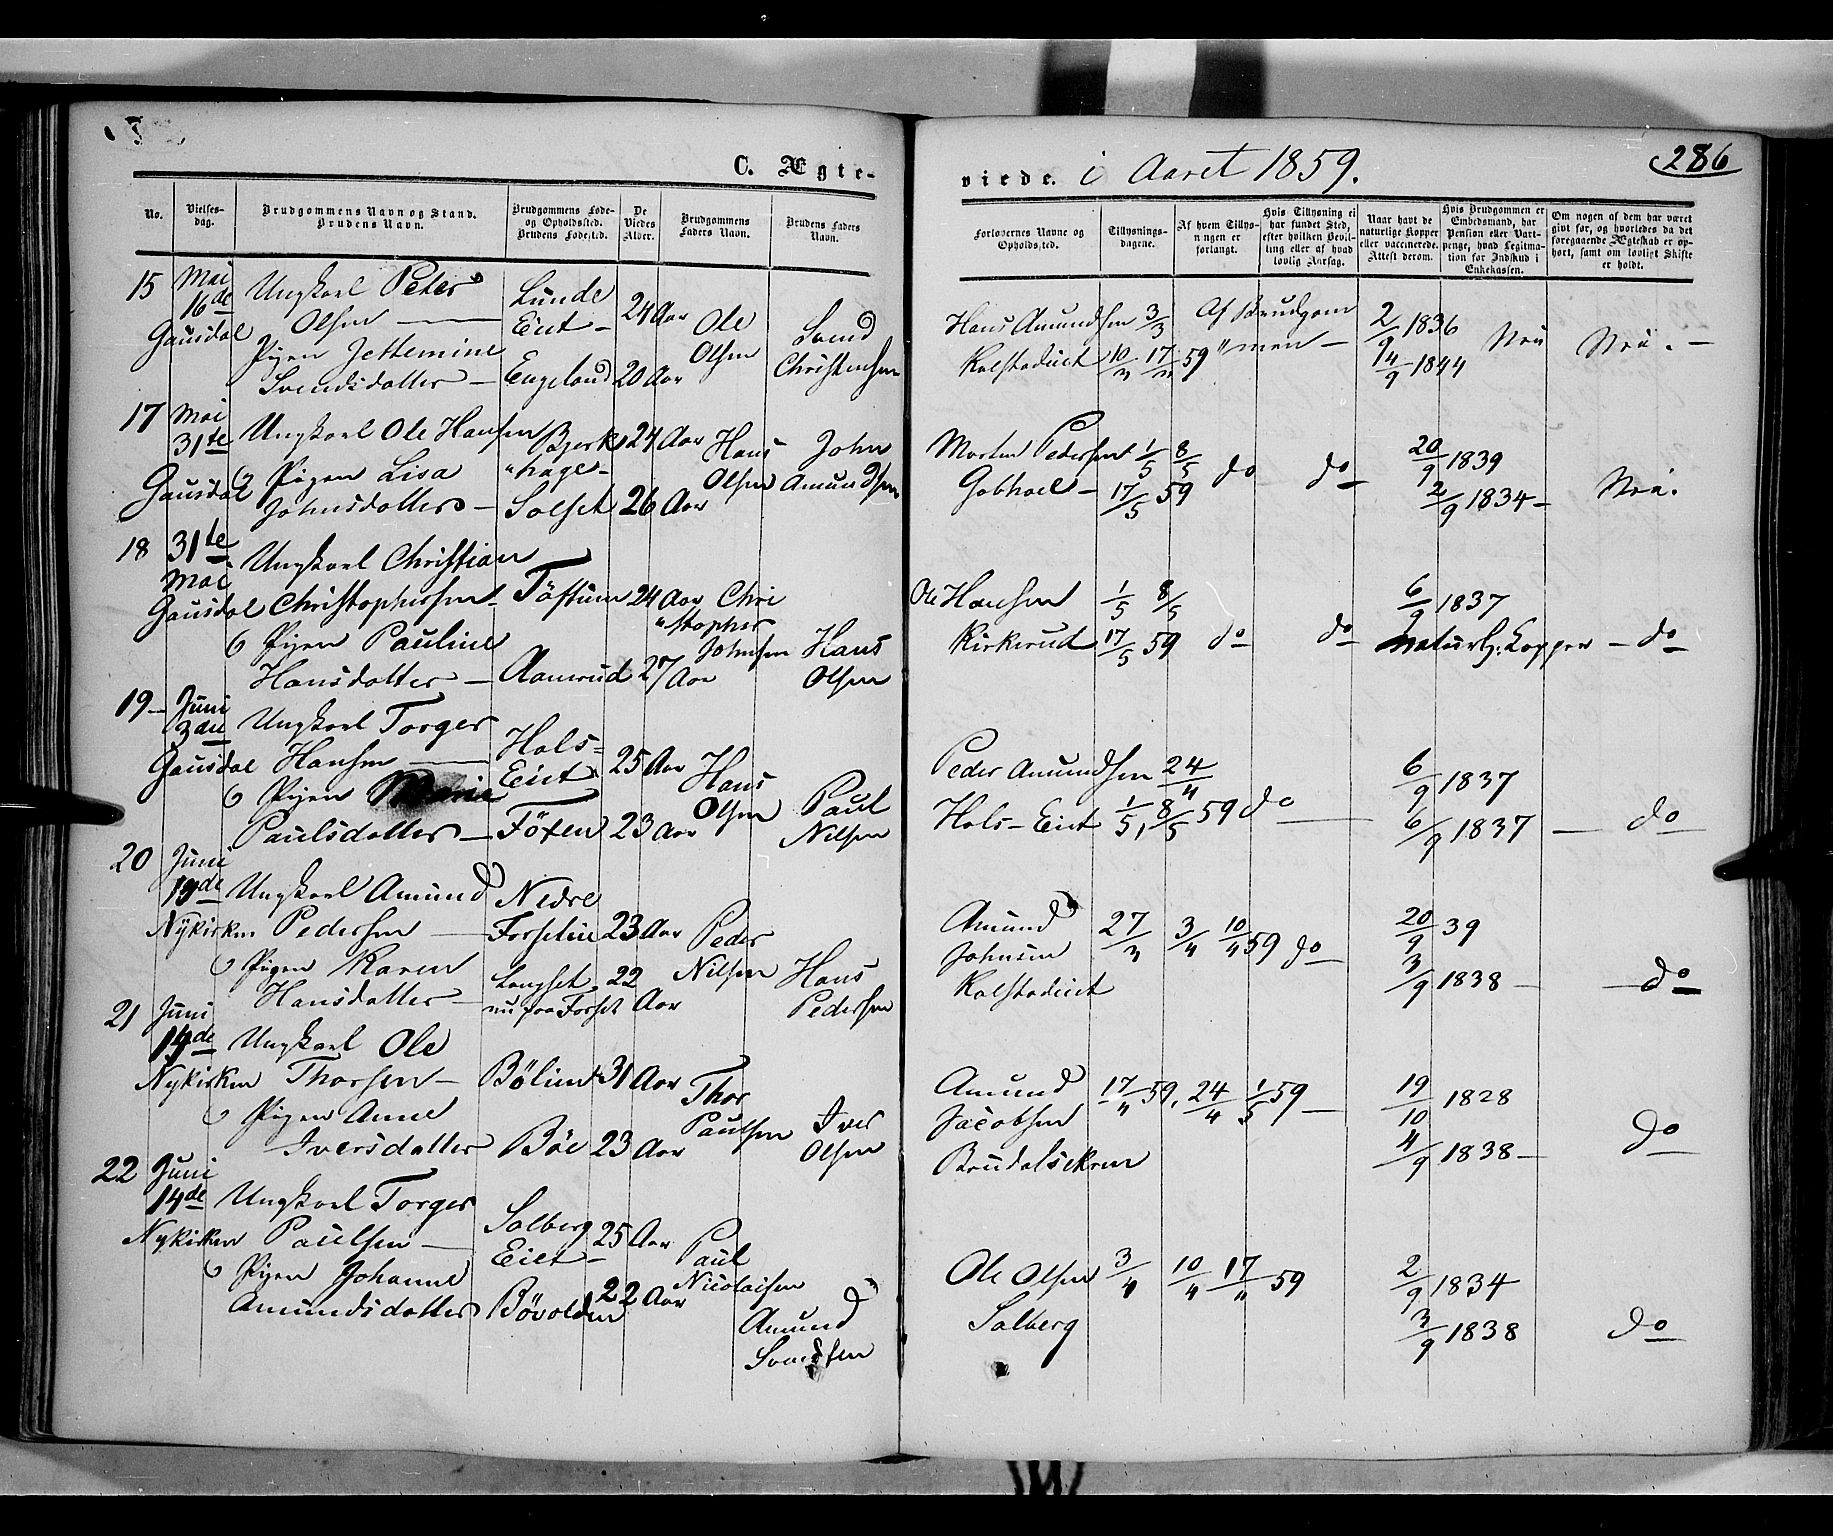 C. Ægte-
viede. i Aaret 1859.
286
No.
Vielses-
dag.
Brudgommens Navn og Stand.
Brudens Navn.
Brudgommens Føde-
og Opholdssted.
Brudens Fødested.
De
Viedes
Alder.
Brudgommens
Faders Navn.
Brudens Faders
Navn.
Forlovernes Navne og
Opholdssted.
Tillysnings-
dagene.
Af hvem Tillys-
ningen er
forlangt.
Hvis Tillysning ei
har fundet Sted,
efter hvilken Bevil-
ling eller af hvad
lovlig Aarsag.
Naar havt de
naturlige Kopper
eller vaccinerede.
Attest derom.
Hvis Brudgommen er
Embedsmand, har
Pension eller Vart-
penge, hvad Legitima-
tion for Indskud i
Enkekassen.
Om nogen af dem har været
gift før, og hvorledes da det
foregaaende Ægteskab er op-
hørt, samt om lovligt Skifte
er holdt.
15
Mai
16de
Gausdal
Ungkarl Peter
Olsen —
Pigen Jettemine
Svendsdatter —
Lunde
Eiet —
Engeland
24 Aar
20 Aar
Ole
Olsen
Svend
Christensen
Hans Amundsen
Kalstadeiet
3/3
10/3 17/3 59
Af Brudgom
"men —
2/9 1836
14/9 1844
Nei
Nei. —
17
Mai
31te
Gausdal
Ungkarl Ole Hansen
Pigen Lisa
Johnsdatter —
Bjerke
"hage —
Solset
24 Aar
26 Aar
Hans
Olsen
John
Amundsen
Morten Pedersen
Gobhoel —
1/5 8/5
17/5 59
do
do
20/9 1839
2/9 1834 —
Nei.
18
31te
Mai
Gausdal
Ungkarl Christian
Christophersen —
Pigen Pauline
Hansdatter —
Töftum
Aamrud
24 Aar
27
Aar
Chri
"stopher
Johnsen
Hans
Olsen
Ole Hansen
Kirkerud
1/5 8/5
17/5 59
do
do
6/9 1837
naturl. Kopper —
do
19 —
Juni
3die
Gausdal
Ungkarl Torger
Hansen —
Pigen Marie
Paulsdatter —
Hols-
Eiet
Föxen
25 Aar
23 Aar
Hans
Olsen
Paul
Nilsen
Peder Amundsen
Hols-Eiet
24/4
1/5, 8/5 59
do —
6/9 1837
6/9 1837 —
do
20
Juni
Nykirken
Ungkarl Amund
Pedersen —
Pigen Karen
Hansdatter —
Nedre
Forseteie
Langset
nu paa Forset
23 Aar
22
Aar
Peder
Nilsen
Hans
Pedersen
Amund
Johnsen
Kalstadeiet
27/3 3/4 10/4 59
do
20/9 39
3/9 1838 —
do
21
Juni
14de
Nykirken
Ungkarl Ole
Thorsen —
Pigen Anne
Iversdatter
Bölien
Böe
31 Aar
23 Aar
Thor
Paulsen
Iver
Olsen
Amund
Jacobsen
17/4 59, 24/4 1/5 59 —
19/10 1828
4/9 1838 —
do
22
Juni
14de
Nykirken
Ungkarl Torger
Paulsen —
Pigen Johanne
Amundsdatter
Solberg
Eiet —
Bövolden
25 Aar
22 Aar
Paul
Nicolaisen
Amund
Svendsen
Ole Olsen
Solberg
3/4 10/4 17/4 59
2/9 1834
3/9 1838
do